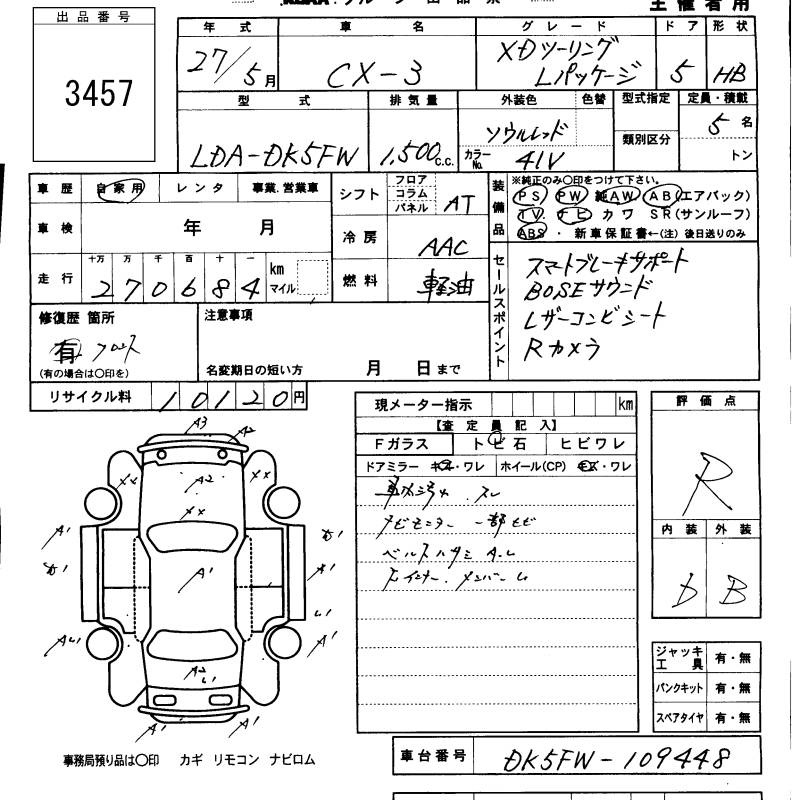 出品番号
3457
主催者用
年式 車名 グレード ドア 形状
27/5月 CX-3 XDツーリング Lパッケージ 5 HB
型式 排気量 外装色 色替 型式指定 定員・積載
LDA-DK5FW 1,500c.c. ソウルレッド 類別区分 5名
カラーNo. 41V トン
車歴 自家用 レンタ 事業.営業車
車検 年 月
走行 十万 万 千 百 十 一 km マイル
270684
シフト フロア コラム パネル AT
冷房 AAC
燃料 軽油
装備品 ※純正のみ○印をつけて下さい。
PS PW 純AW AB(エアバック)
TV ナビ カワ SR(サンルーフ)
ABS ・ 新車保証書←(注) 後日送りのみ
セールスポイント
スマートブレーキサポート
BOSEサウンド
レザーコンビシート
Rカメラ
修復歴 箇所
有 フロント
(有の場合は○印を)
注意事項
名変期日の短い方 月 日まで
リサイクル料 10120円
現メーター指示 km
【査定員記入】
Fガラス トビ石 ヒビワレ
ドアミラー キズ・ワレ ホイール(CP) キズ・ワレ
ナビモニター 一部キビ
評価点
R
内装 外装
D B
A3 A2
XX A2 XX
XX
A1
A1
A1
A1
A2
U1
A1 A1
ジャッキ工具 有・無
パンクキット 有・無
スペアタイヤ 有・無
事務局預り品は○印 カギ リモコン ナビロム
車台番号 DK5FW-109448